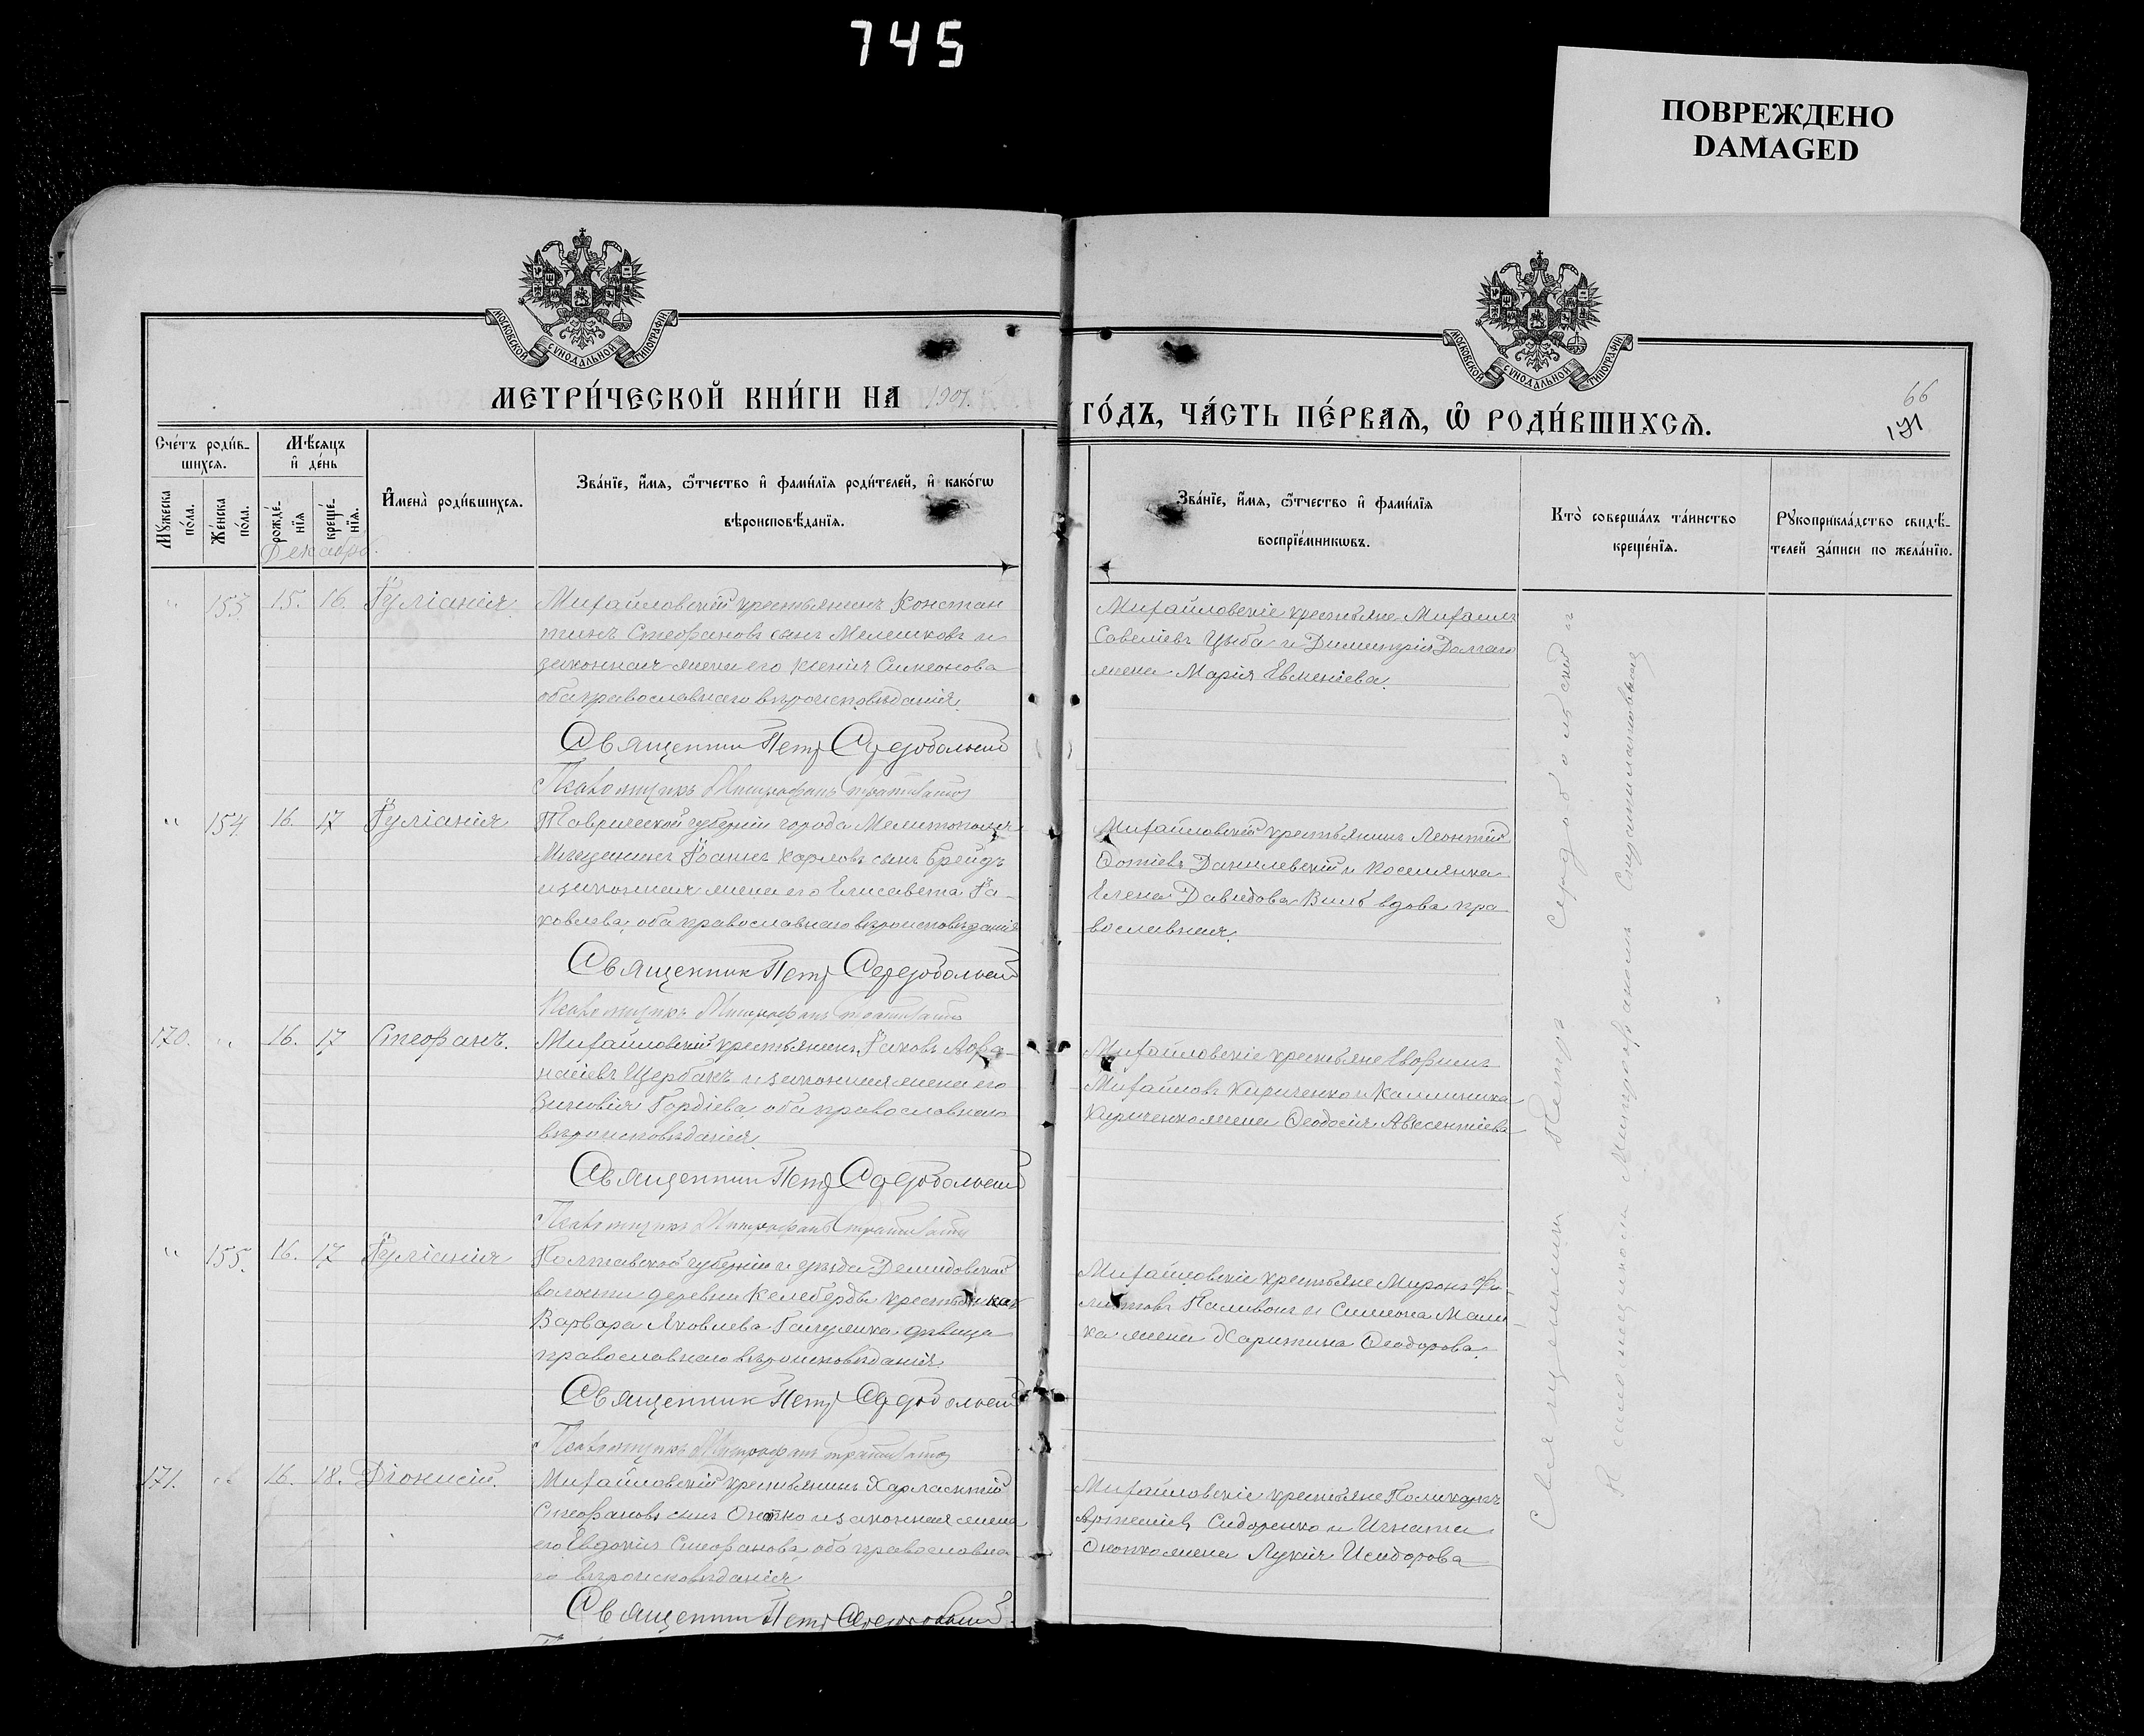 745
ПОВРЕЖДЕНО
DAMAGED
МОСКОВСКОЙ СѴНОДАЛЬНОЙ ТИПОГРАФІИ
МОСКОВСКОЙ СѴНОДАЛЬНОЙ ТИПОГРАФІИ
МЕТРИ́ЧЕСКОЙ КНИ́ГИ НА 1901.
ГО́ДЪ, ЧА́СТЬ ПЕ́РВАѦ, Ѡ РОДИ́ВШИХСѦ.
66
171
Сче́тъ роди́в-
шихсѧ.
Мѣ́сѧцъ
и҆ де́нь
Мꙋ́жеска по́ла.
Же́нска по́ла.
рожде́-
нїѧ
креще́-
нїѧ.
И҆мена̀ роди́вшихсѧ.
Зва́нїе, и҆́мѧ, ѻ҆́тчество и҆ фами́лїѧ роди́телей, и҆ како́гѡ
вѣроисповѣ́данїѧ.
Зва́нїе, и҆́мѧ, ѻ҆́тчество и҆ фами́лїѧ
воспрїе́мникѡвъ.
Кто̀ соверша́лъ та́инство
креще́нїѧ.
Рꙋкоприкла́дство свидѣ́-
телей за́писи по жела́нїю.
Декабрь.
" 153 15. 16. Іуліанія
Михайловскій крестьянинъ Констан
тинъ Стефановъ сынъ Мелешковъ и
законная жена его Ксенія Симеонова
оба православнаго вѣроисповѣданія.
Священник Петр
Псаломщикъ Митрофанъ
Михайловскіе крестьяне Михаилъ
Савеліевъ Цыба и Димитрія
жена Марія Евменіева.
" 154. 16. 17 Іуліанія
Таврической губерніи города Мелитополя
Мѣщанинъ Іоаннъ Карловъ сынъ Брейдъ
и законная жена его Елисавета Іа-
ковлева, оба православнаго вѣроисповѣданія
Священник Петр
Псаломщикъ Митрофанъ
Михайловскій крестьянинъ Леонтій
Фотіевъ Данилевскій и поселянка
Елена Давидова Виль вдова пра
вославная.
170. " 16. 17 Стефанъ.
Михайловскій крестьянинъ Іаковъ Афа-
насіевъ Щербакъ и законная жена его
Зиновія Гордіева, оба православнаго
вѣроисповѣданія
Священник Петр
Псаломщикъ Митрофанъ
Михайловскіе крестьяне Евфимъ
Михайловъ Кириченко и Каллиника
Кириченко жена Феодосія Авксентіева
" 155. 16. 17 Іуліанія
Полтавской губерніи и уѣзда Демидовской
волости деревни Келеберды крестьянка
Варвара Яковлева дѣвица
православнаго вѣроисповѣданія.
Священник Петр
Псаломщикъ Митрофанъ
Михайловскіе крестьяне Миронъ Фи-
липповъ Паливон и Симеона Мали-
ка жена Харитина Феодорова.
171. " 16. 18. Діонисій.
Михайловскій крестьянинъ Харлампій
Стефановъ сынъ и законная жена
его Евдокія Стефанова, оба православна
го вѣроисповѣданія
Священник Петр
Михайловскіе крестьяне Поликарпъ
Артеміевъ Сидоренко и Игнатія
жена Лукія Исидорова
Священникъ Петръ
Псаломщикомъ Митрофаномъ